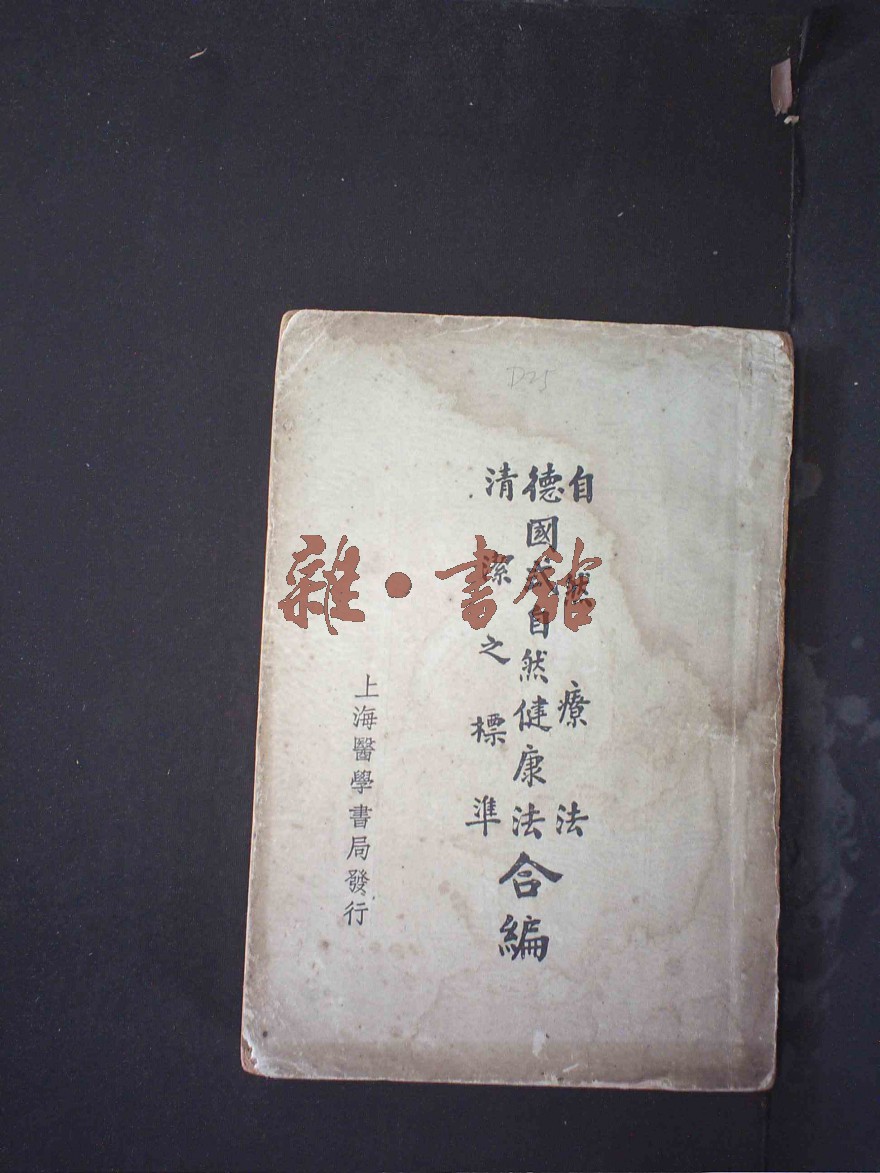 D25
自然療法
德國式自然健康法
清潔之標準
合編
上海醫學書局發行
雜·書館